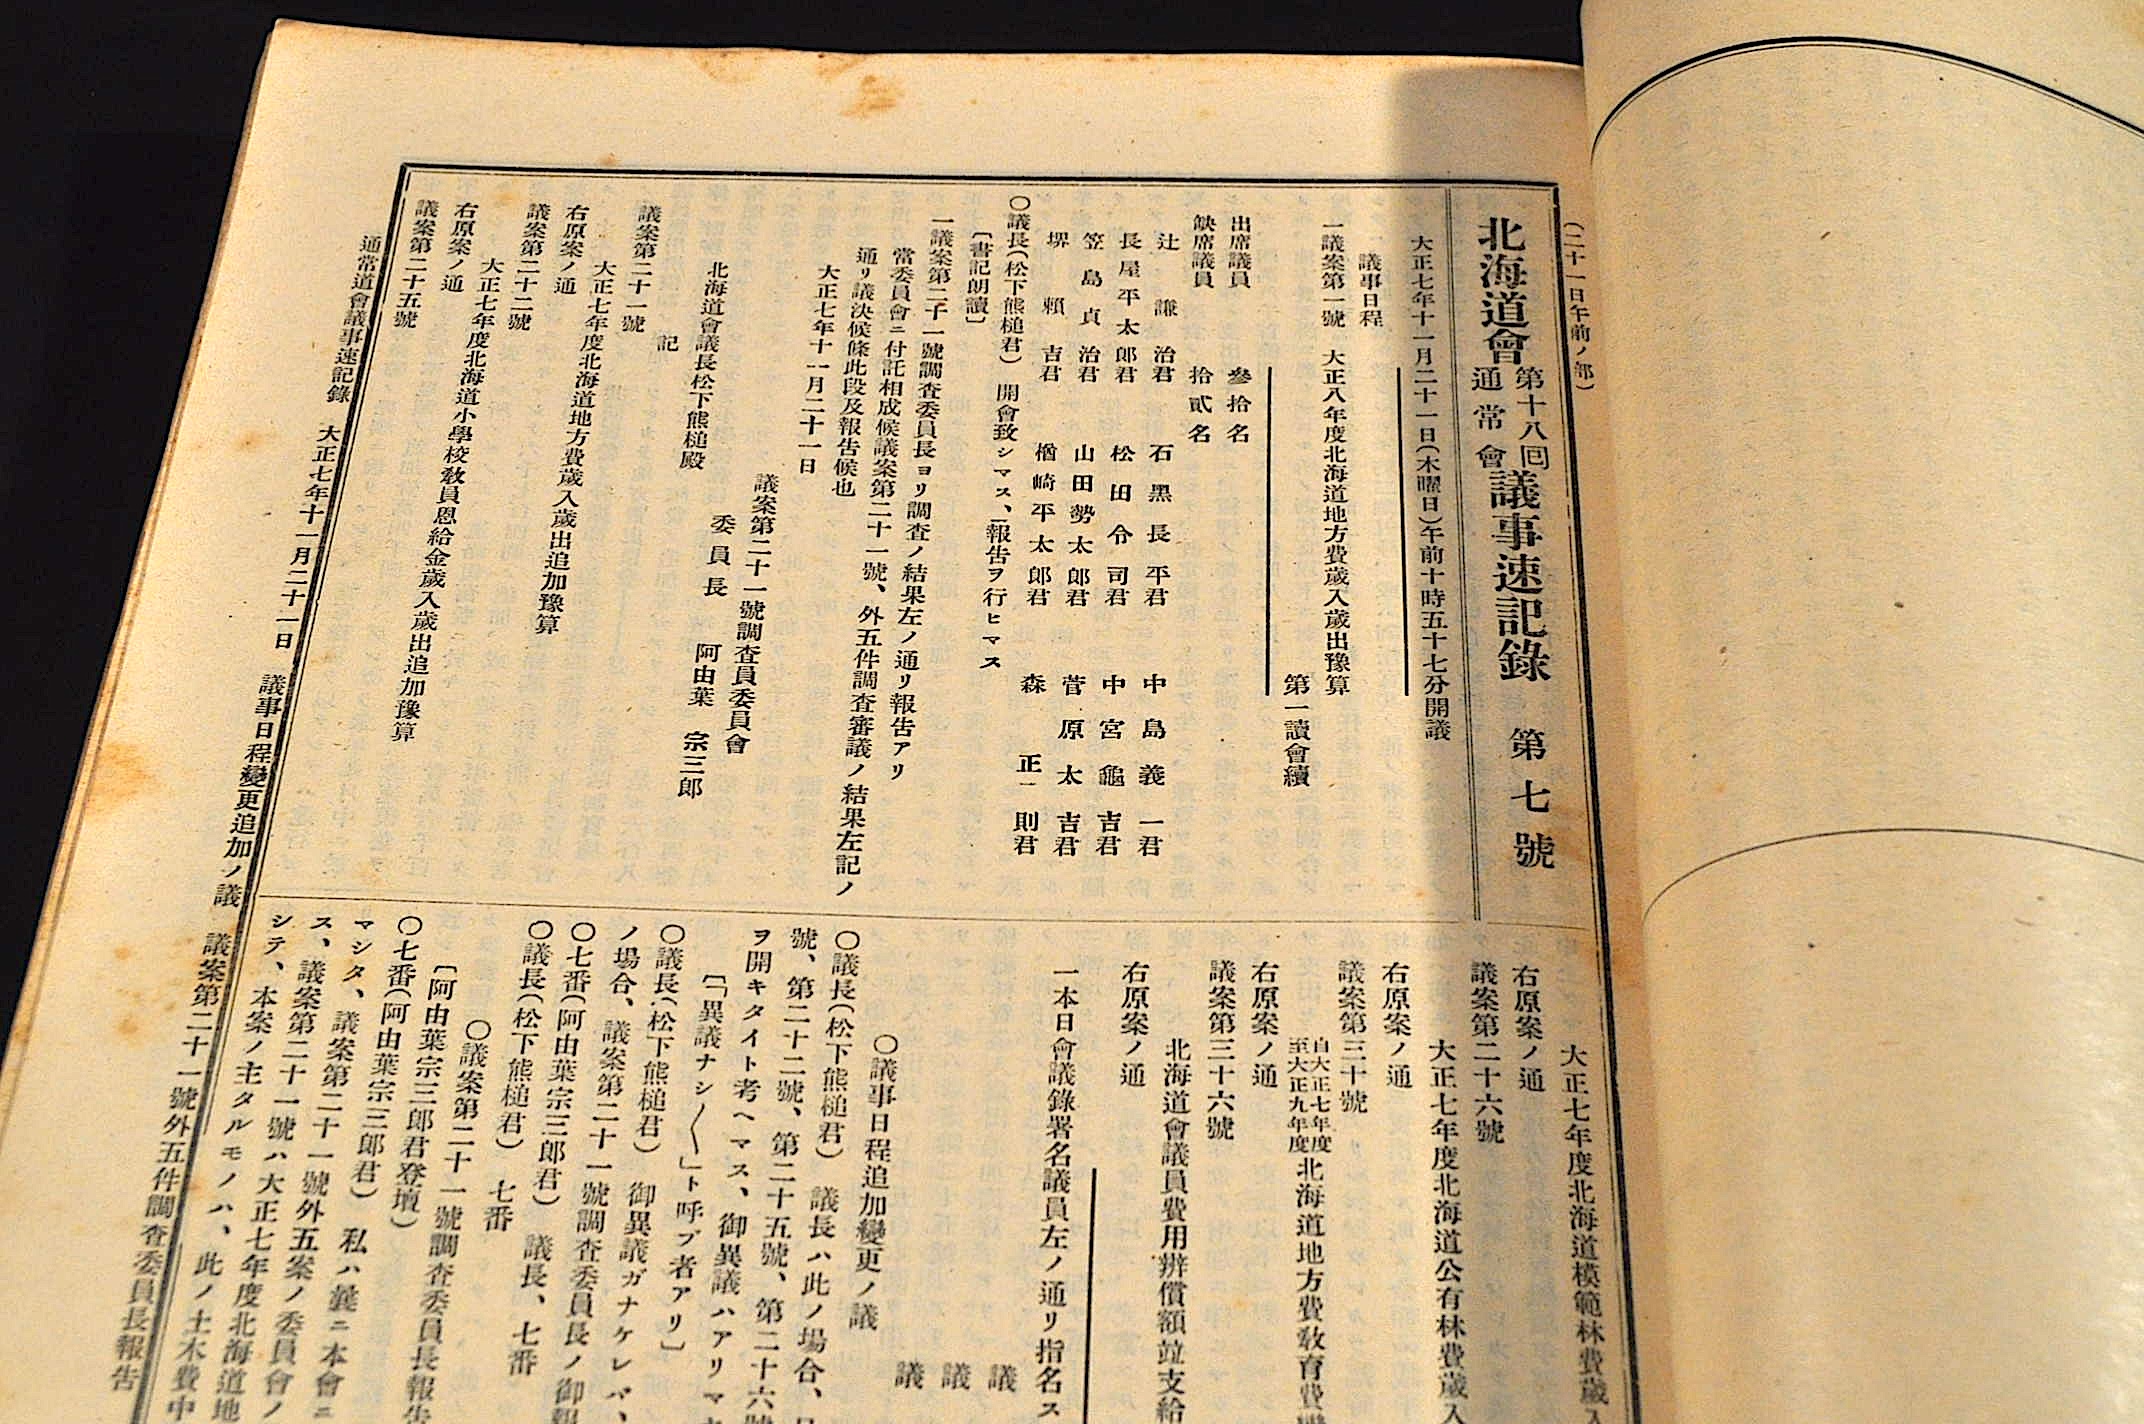 (二十一日午前ノ部)
北海道會第十八回通常會議事速記錄 第七號
大正七年十一月二十一日(木曜日)午前十時五十七分開議
議事日程
一議案第一號 大正八年度北海道地方費歲入歲出豫算
第一讀會續
出席議員 參拾名
缺席議員 拾貳名
辻謙治君 石黑長平君 中島義一君
長屋平太郎君 松田令司君 中宮龜吉君
笠島貞治君 山田勢太郎君 菅原太吉君
堺賴吉君 楢崎平太郎君 森正則君
〇議長(松下熊槌君) 開會致シマス、報告ヲ行ヒマス
〔書記朗讀〕
一議案第二十一號調査委員長ヨリ調査ノ結果左ノ通リ報告アリ
當委員會ニ付託相成候議案第二十一號、外五件調査審議ノ結果左記ノ
通リ議決候條此段及報告候也
大正七年十一月二十一日
議案第二十一號調査員委員會
委員長 阿由葉 宗三郎
北海道會議長松下熊槌殿
記
議案第二十一號
大正七年度北海道地方費歲入歲出追加豫算
右原案ノ通
議案第二十二號
大正七年度北海道小學校敎員恩給金歲入歲出追加豫算
右原案ノ通
議案第二十五號
大正七年度北海道模範林費歲入
右原案ノ通
議案第二十六號
大正七年度北海道公有林費歲入
右原案ノ通
議案第三十號
自大正七年度至大正九年度北海道地方費敎育費
右原案ノ通
議案第三十六號
北海道會議員費用辨償額竝支給
右原案ノ通
一本日會議錄署名議員左ノ通リ指名ス
議
議
議
〇議事日程追加變更ノ議
〇議長(松下熊槌君) 議長ハ此ノ場合、
號、第二十二號、第二十五號、第二十六號
ヲ開キタイト考ヘマス、御異議ハアリマ
〔「異議ナシ〱」ト呼ブ者アリ〕
〇議長(松下熊槌君) 御異議ガナケレバ、
ノ場合、議案第二十一號調査委員長ノ御報
〇七番(阿由葉宗三郎君) 議長、七番
〇議長(松下熊槌君) 七番
〇議案第二十一號調査委員長報告
〔阿由葉宗三郎君登壇〕
〇七番(阿由葉宗三郎君) 私ハ曩ニ本會ニ
マシタ、議案第二十一號外五案ノ委員會ノ
ス、議案第二十一號ハ大正七年度北海道地
シテ、本案ノ主タルモノハ、此ノ土木費中
通常道會議事速記錄 大正七年十一月二十一日 議事日程變更追加ノ議 議案第二十一號外五件調査委員長報告